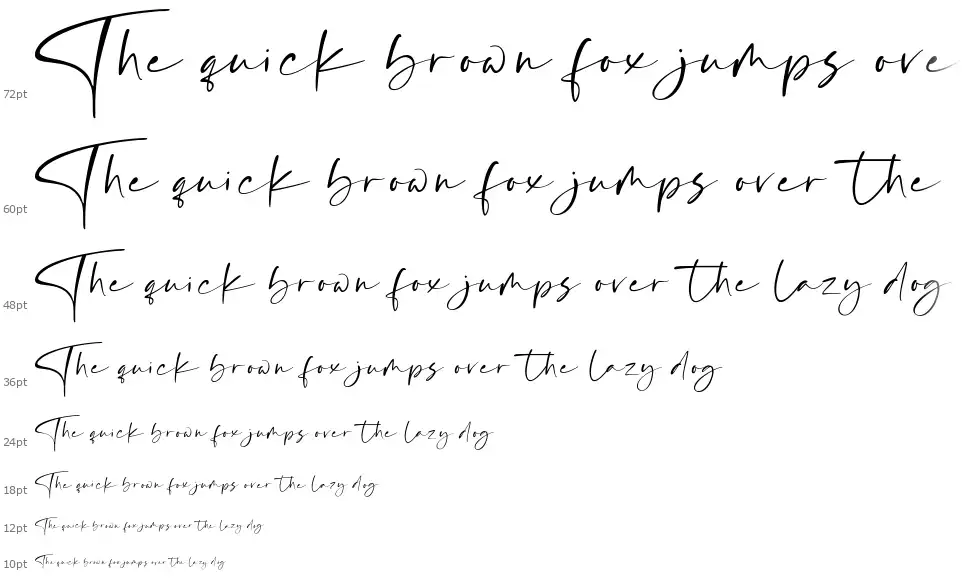 The quick brown fox jumps ove
72pt
The quick brown fox jumps over the
60pt
The quick brown fox jumps over the lazy dog
48pt
The quick brown fox jumps over the lazy dog
36pt
The quick brown fox jumps over the lazy dog
24pt
The quick brown fox jumps over the lazy dog
18pt
The quick brown fox jumps over the lazy dog
12pt
The quick brown fox jumps over the lazy dog
10pt